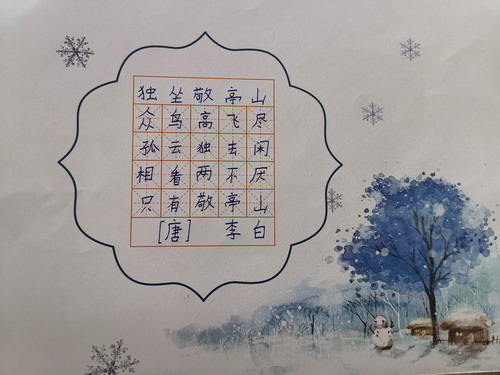 独坐敬亭山
众鸟高飞尽
孤云独去闲
相看两不厌
只有敬亭山
[唐] 李白